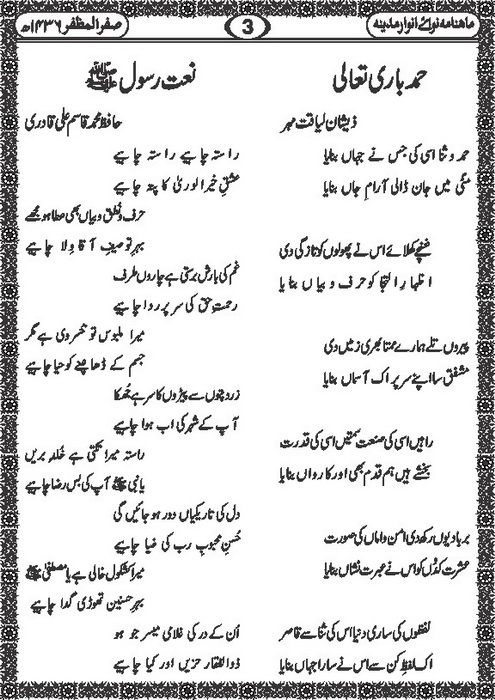 ماہنامہ نوائے انوار مدینہ
3
صفر المظفر ۱۴۳۶ھ
حمد باری تعالیٰ
ذیشان لیاقت مہر
حمد و ثنا اسی کی جس نے جہاں بنایا
مٹی میں جان ڈالی آرامِ جاں بنایا
غنچے کھلائے اس نے پھولوں کو تازگی دی
اظہارِ التجا کو حرف و بیاں بنایا
پیروں تلے ہمارے ممتا بھری زمیں دی
مشفق سا اپنے سر پر اک آسماں بنایا
راہیں اسی کی صنعت سمتیں اسی کی قدرت
بخشے ہیں ہم قدم بھی اور کارواں بنایا
بربادیوں رکھ دی امن و اماں کی صورت
عشرت کدوں کو اس نے عبرت نشاں بنایا
لفظوں کی ساری دنیا اس کی ثنا سے قاصر
اک لفظِ کن سے اس نے سارا جہاں بنایا
نعت رسول ﷺ
حافظ محمد قاسم علی قادری
راستہ چاہیے راستہ چاہیے
عشقِ خیر الوریٰ کا پتہ چاہیے
حرف و نطق و بیاں بھی عطا ہو مجھے
بہرِ توصیفِ آقا وِلا چاہیے
غم کی بارش برستی ہے چاروں طرف
رحمتِ حق کی سر پر ردا چاہیے
میرا ملبوس تو خسروی ہے مگر
جسم کے ڈھانپنے کو حیا چاہیے
زرد پتوں سے پیڑوں کا سر ہے جھکا
آپ کے شہر کی اب ہوا چاہیے
راستہ میرا تکتی ہے خلدِ بریں
یا نبی ﷺ آپ کی بس رضا چاہیے
دل کی تاریکیاں دور ہو جائیں گی
حُسنِ محبوبِ رب کی ضیا چاہیے
میرا کشکول خالی ہے یا مصطفیٰ ﷺ
بہرِ حسنین تھوڑی گدا چاہیے
اُن کے در کی غلامی میسر جو ہو
ذوالفقارِ حزیں اور کیا چاہیے